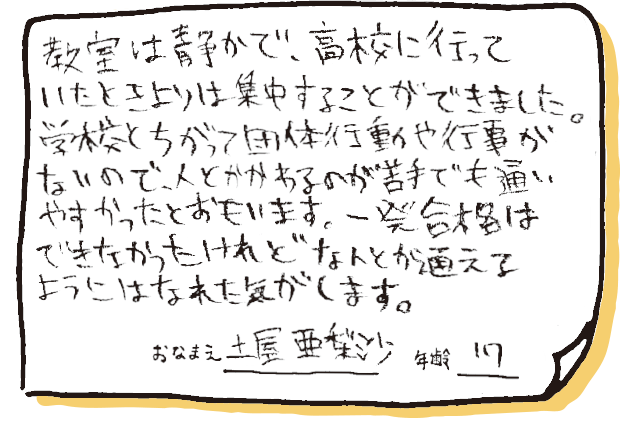 教室は青静かで、高校に行って
いたときよりは集中することができました。
学校とちがって団体行動や行事が
ないので、人とかかわるのが苦手でも通い
やすかったとおもいます。一発合格は
できなかったけれどなんとか通える
ようにはなれた気がします。
おなまえ 土屋 亜梨沙 年齢 17